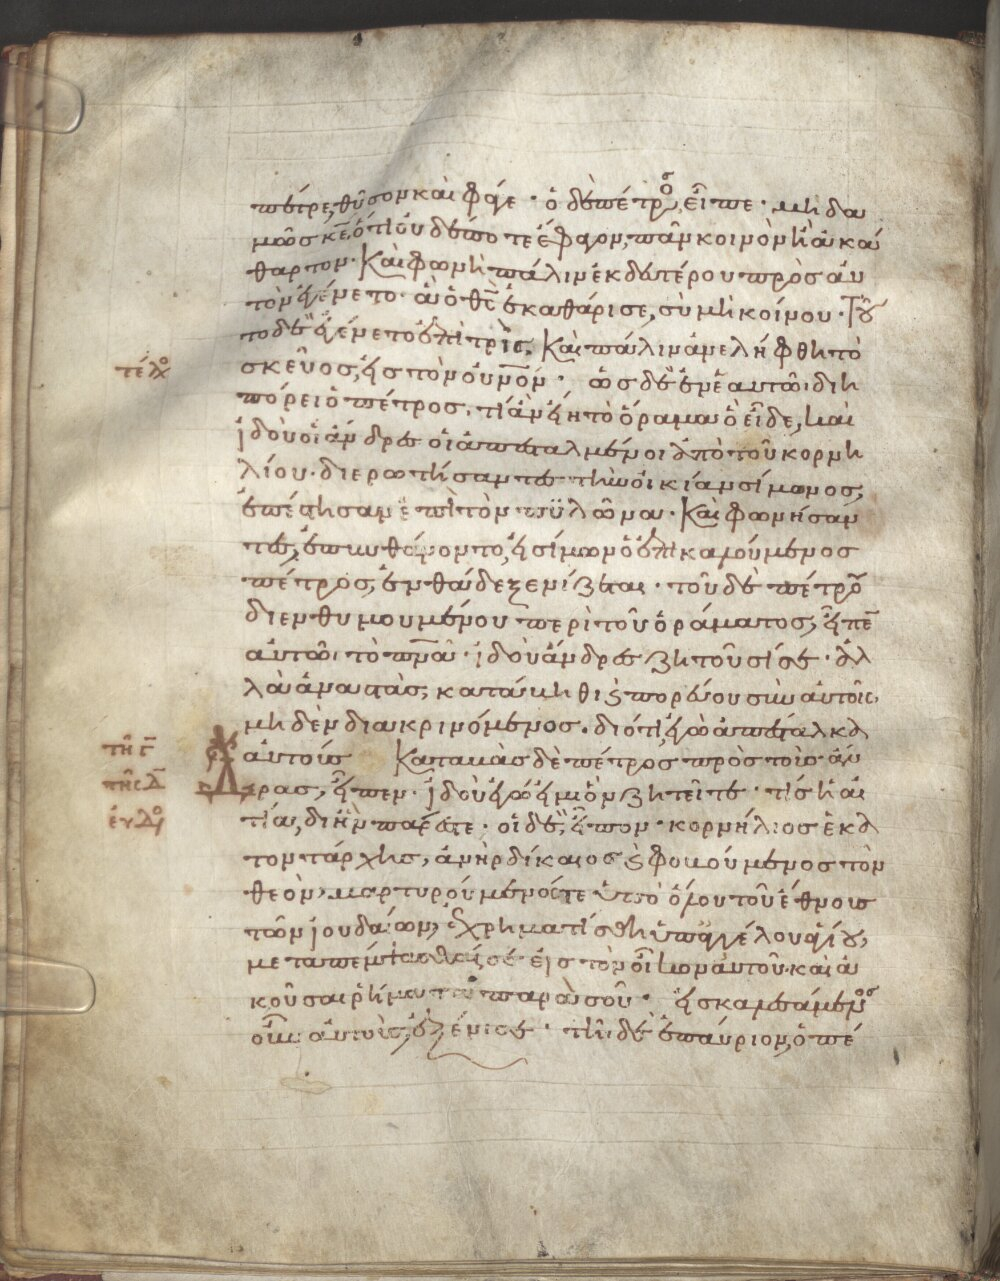 πέτρε, θῦσον καὶ φάγε · ὁ δὲ πέτρος, εἶπε · μὴ δα
μῶς κε, ὅτι οὐδέποτε ἔφαγον, πᾶν κοινὸν ἢ ἀκά
θαρτον · Καὶ φωνὴ πάλιν ἐκ δευτέρου πρὸς αὐ
τὸν ἐγένετο · ἃ ὁ θς ἐκαθάρισε, σὺ μὴ κοίνου · Τοῦ
το δὲ ἐγένετο ἐπὶ τρίς, Καὶ πάλιν ἀνελήφθη τὸ
τέλος
σκεῦος, εἰς τὸν οὐνον · ὡς δὲ ἐν ἑαυτῶ διη
πόρει ὁ πέτρος, τί ἂν εἴη τὸ ὅραμα ὃ εἶδε, καὶ
ἰδοὺ οἱ ἄνδρες οἱ ἀπεσταλμένοι ἀπὸ τοῦ κορνη
λίου · διερωτήσαντες τὴν οἰκίαν σίμωνος,
ἐπέστησαν ἐπὶ τὸν πυλῶνα · Καὶ φωνήσαν
τες, ἐπυνθάνοντο, εἰ σίμων ὁ ἐπικαλούμενος
πέτρος, ἐνθάδε ξενίζεται · τοῦ δὲ πέτρου
διενθυμουμένου περὶ τοῦ ὁράματος, εἶπεν
αὐτῶ τὸ πνα · ἰδοὺ ἄνδρες ζητοῦσί σε · ἀλ
λὰ ἀναστὰς, κατάβηθι ϗ πορεύου σὺν αὐτοῖς,
μηδὲν διακρινόμενος · διότι ἐγὼ ἀπέσταλκα
τῆ γ
αὐτούς Καταβὰς δὲ πέτρος πρὸς τοὺς ἄν
τῆς δ
δρας, εἶπεν · ἰδοὺ ἐγώ εἰμι ὃν ζητεῖτε · τίς ἡ αἰ
τία, δι ἣν πάρεστε · οἱ δὲ, εἶπον · κορνήλιος ἑκα
τοντάρχης, ἀνὴρ δίκαιος ϗ φοβούμενος τὸν
θεὸν, μαρτυρούμενός τε ὑπὸ ὅλου τοῦ ἔθνους
τῶν ἰουδαίων, ἐχρηματίσθη ὑπὸ ἀγγέλου ἁγίου,
μεταπέμψασθαί σε εἰς τὸν οἶκον αὐτοῦ · καὶ ἀ
κοῦσαι ῥήματα παρὰ σοῦ · εἰσκαλεσάμενος
οὖν αὐτοὺς, ἐξένισε · τῆ δὲ ἐπαύριον, ὁ πέ